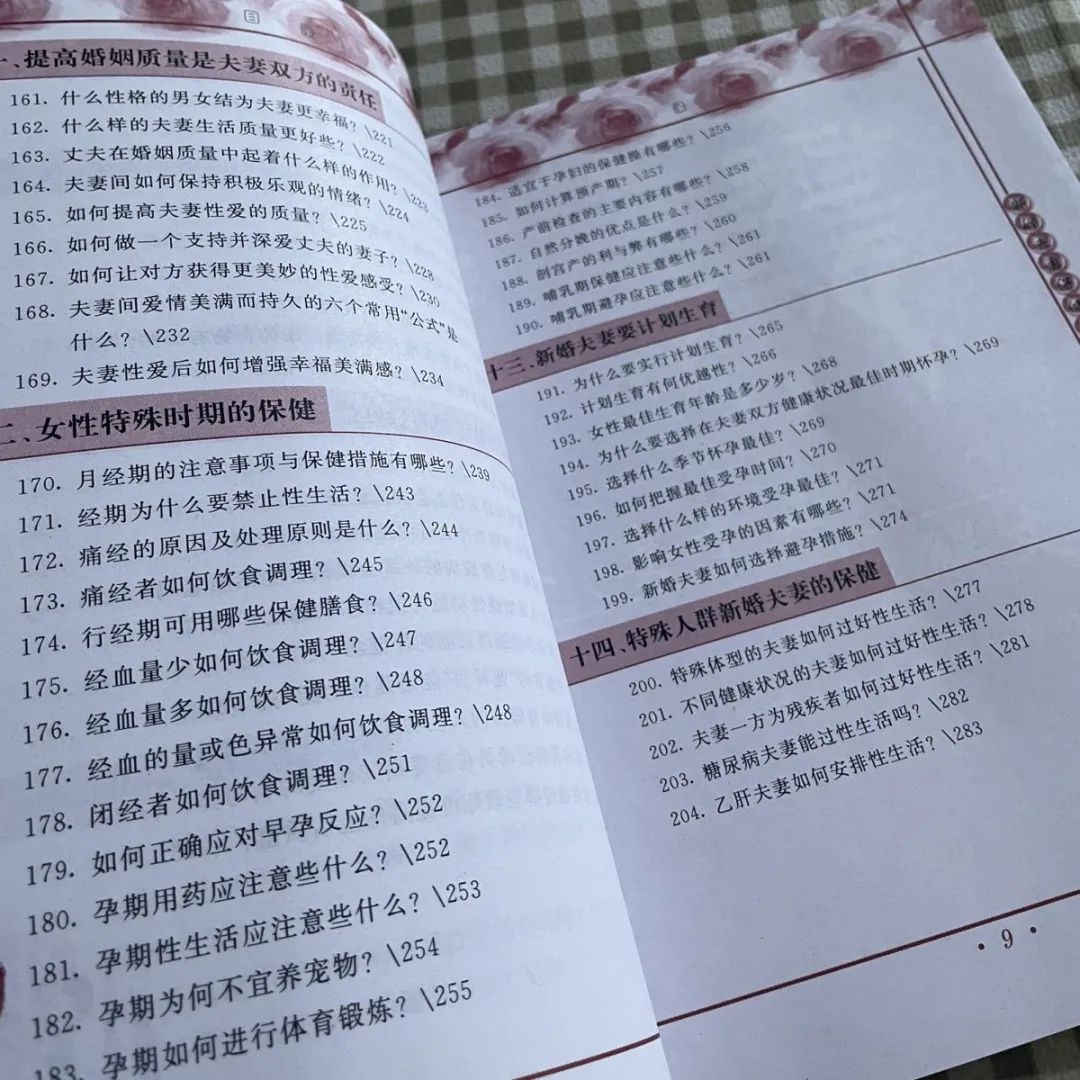 目
一、提高婚姻质量是夫妻双方的责任
161. 什么性格的男女结为夫妻更幸福？\221
162. 什么样的夫妻生活质量更好些？\222
163. 丈夫在婚姻质量中起着什么样的作用？\223
164. 夫妻间如何保持积极乐观的情绪？\224
165. 如何提高夫妻性爱的质量？\225
166. 如何做一个支持并深爱丈夫的妻子？\228
167. 如何让对方获得更美妙的性爱感受？\230
168. 夫妻间爱情美满而持久的六个常用“公式”是
什么？\232
169. 夫妻性爱后如何增强幸福美满感？\234
二、女性特殊时期的保健
170. 月经期的注意事项与保健措施有哪些？\239
171. 经期为什么要禁止性生活？\243
172. 痛经的原因及处理原则是什么？\244
173. 痛经者如何饮食调理？\245
174. 行经期可用哪些保健膳食？\246
175. 经血量少如何饮食调理？\247
176. 经血量多如何饮食调理？\248
177. 经血的量或色异常如何饮食调理？\248
178. 闭经者如何饮食调理？\251
179. 如何正确应对早孕反应？\252
180. 孕期用药应注意些什么？\252
181. 孕期性生活应注意些什么？\253
182. 孕期为何不宜养宠物？\254
183. 孕期如何进行体育锻炼？\255
184. 适宜于孕妇的保健操有哪些？\256
185. 如何计算预产期？\257
186. 产前检查的主要内容有哪些？\258
187. 自然分娩的优点是什么？\259
188. 剖宫产的利与弊有哪些？\260
189. 哺乳期保健应注意些什么？\261
190. 哺乳期避孕应注意些什么？\261
十三、新婚夫妻要计划生育
191. 为什么要实行计划生育？\265
192. 计划生育有何优越性？\266
193. 女性最佳生育年龄是多少岁？\268
194. 为什么要选择在夫妻双方健康状况最佳时期怀孕？\269
195. 选择什么季节怀孕最佳？\269
196. 如何把握最佳受孕时间？\270
197. 选择什么样的环境受孕最佳？\271
198. 影响女性受孕的因素有哪些？\271
199. 新婚夫妻如何选择避孕措施？\274
十四、特殊人群新婚夫妻的保健
200. 特殊体型的夫妻如何过好性生活？\277
201. 不同健康状况的夫妻如何过好性生活？\278
202. 夫妻一方为残疾者如何过好性生活？\281
203. 糖尿病夫妻能过性生活吗？\282
204. 乙肝夫妻如何安排性生活？\283
• 9 •